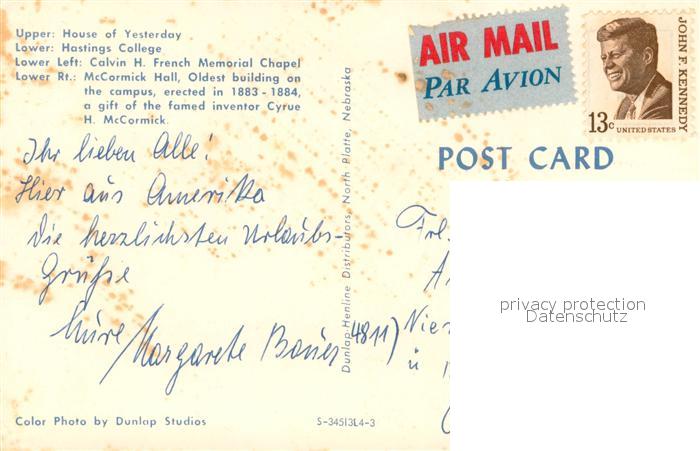 Upper: House of Yesterday
Lower: Hastings College
Lower Left: Calvin H. French Memorial Chapel
Lower Rt.: McCormick Hall, Oldest building on
the campus, erected in 1883-1884,
a gift of the famed inventor Cyrus
H. McCormick.
Ihr lieben Alle!
Hier aus Amerika
die herzlichsten Urlaubs-
Grüße
Eure
Margarete Bauer
Color Photo by Dunlap Studios
S-34513L4-3
Dunlap-Henline Distributors, North Platte, Nebraska
AIR MAIL
PAR AVION
JOHN F. KENNEDY
13c UNITED STATES
POST CARD
Frl.
4811)
ü
privacy protection
Datenschutz